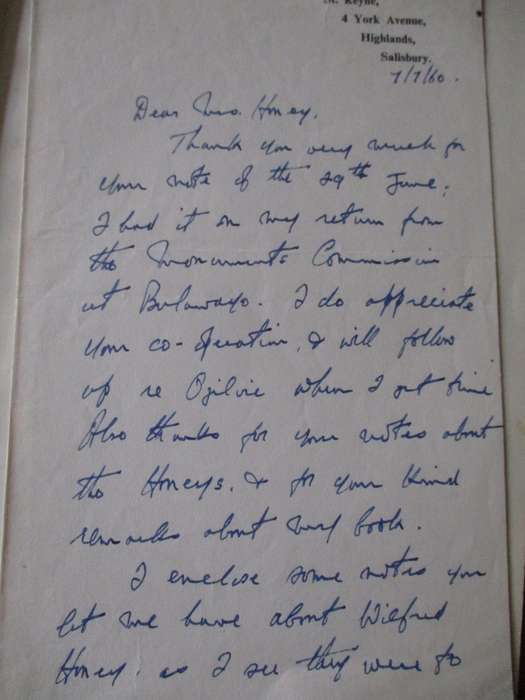 St. Keyne,
4 York Avenue,
Highlands,
Salisbury.
7/7/60.
Dear Mrs. Honey,
Thank you very much for
your note of the 29th June;
I had it on my return from
the Monuments Commission
at Bulawayo. I do appreciate
your co-operation, & will follow
up re Ogilvie when I get time
Also thanks for your notes about
the Honeys, & for your kind
remarks about my book.
I enclose some notes you
let me have about Wilfred
Honey. as I see they were to